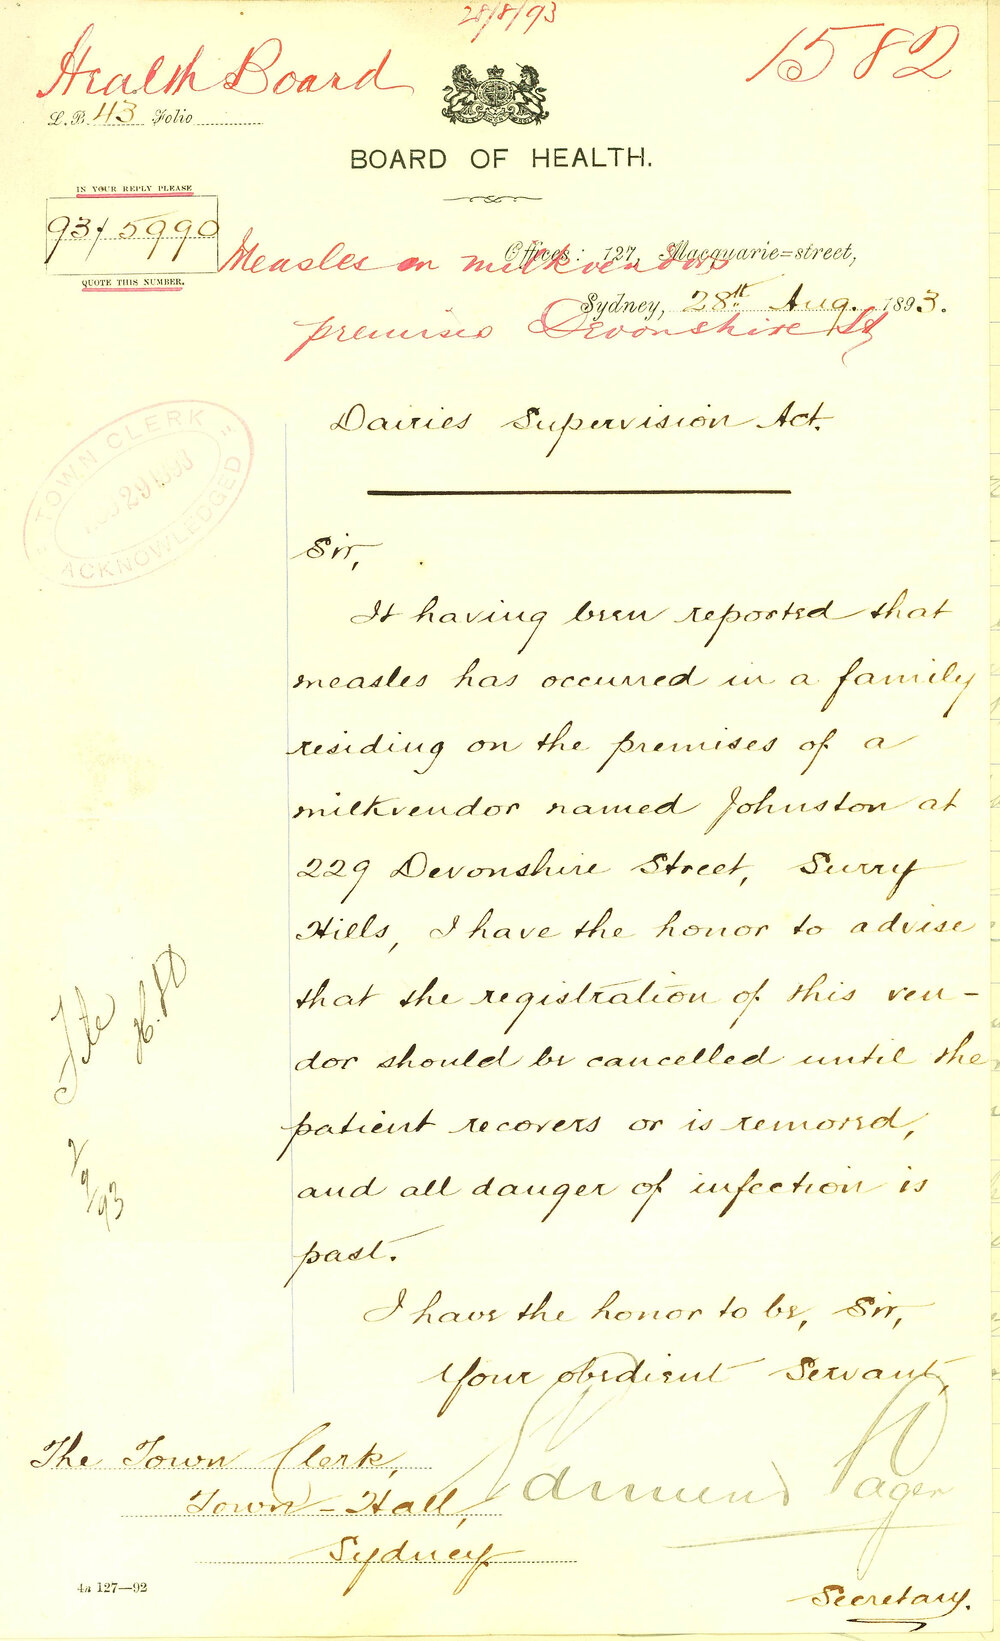 28/8/93
Health Board
1582
L.B. 43 Folio
BOARD OF HEALTH.
IN YOUR REPLY PLEASE
93/5990
QUOTE THIS NUMBER.
Offices: 127, Macquarie=street,
Measles on milkvendors
Sydney, 28th Aug. 1893.
premises Devonshire St
TOWN CLERK
AUG 29 1893
ACKNOWLEDGED
Dairies Supervision Act.
Sir,
It having been reported that
measles has occurred in a family
residing on the premises of a
milkvendor named Johnston at
229 Devonshire Street, Surry
Hills, I have the honor to advise
that the registration of this ven-
dor should be cancelled until the
patient recovers or is removed,
and all danger of infection is
past.
I have the honor to be, Sir,
Your obedient Servant,
File
2/9/93
Edmund Sager
The Town Clerk,
Town-Hall,
Sydney.
Secretary.
4a 127—92